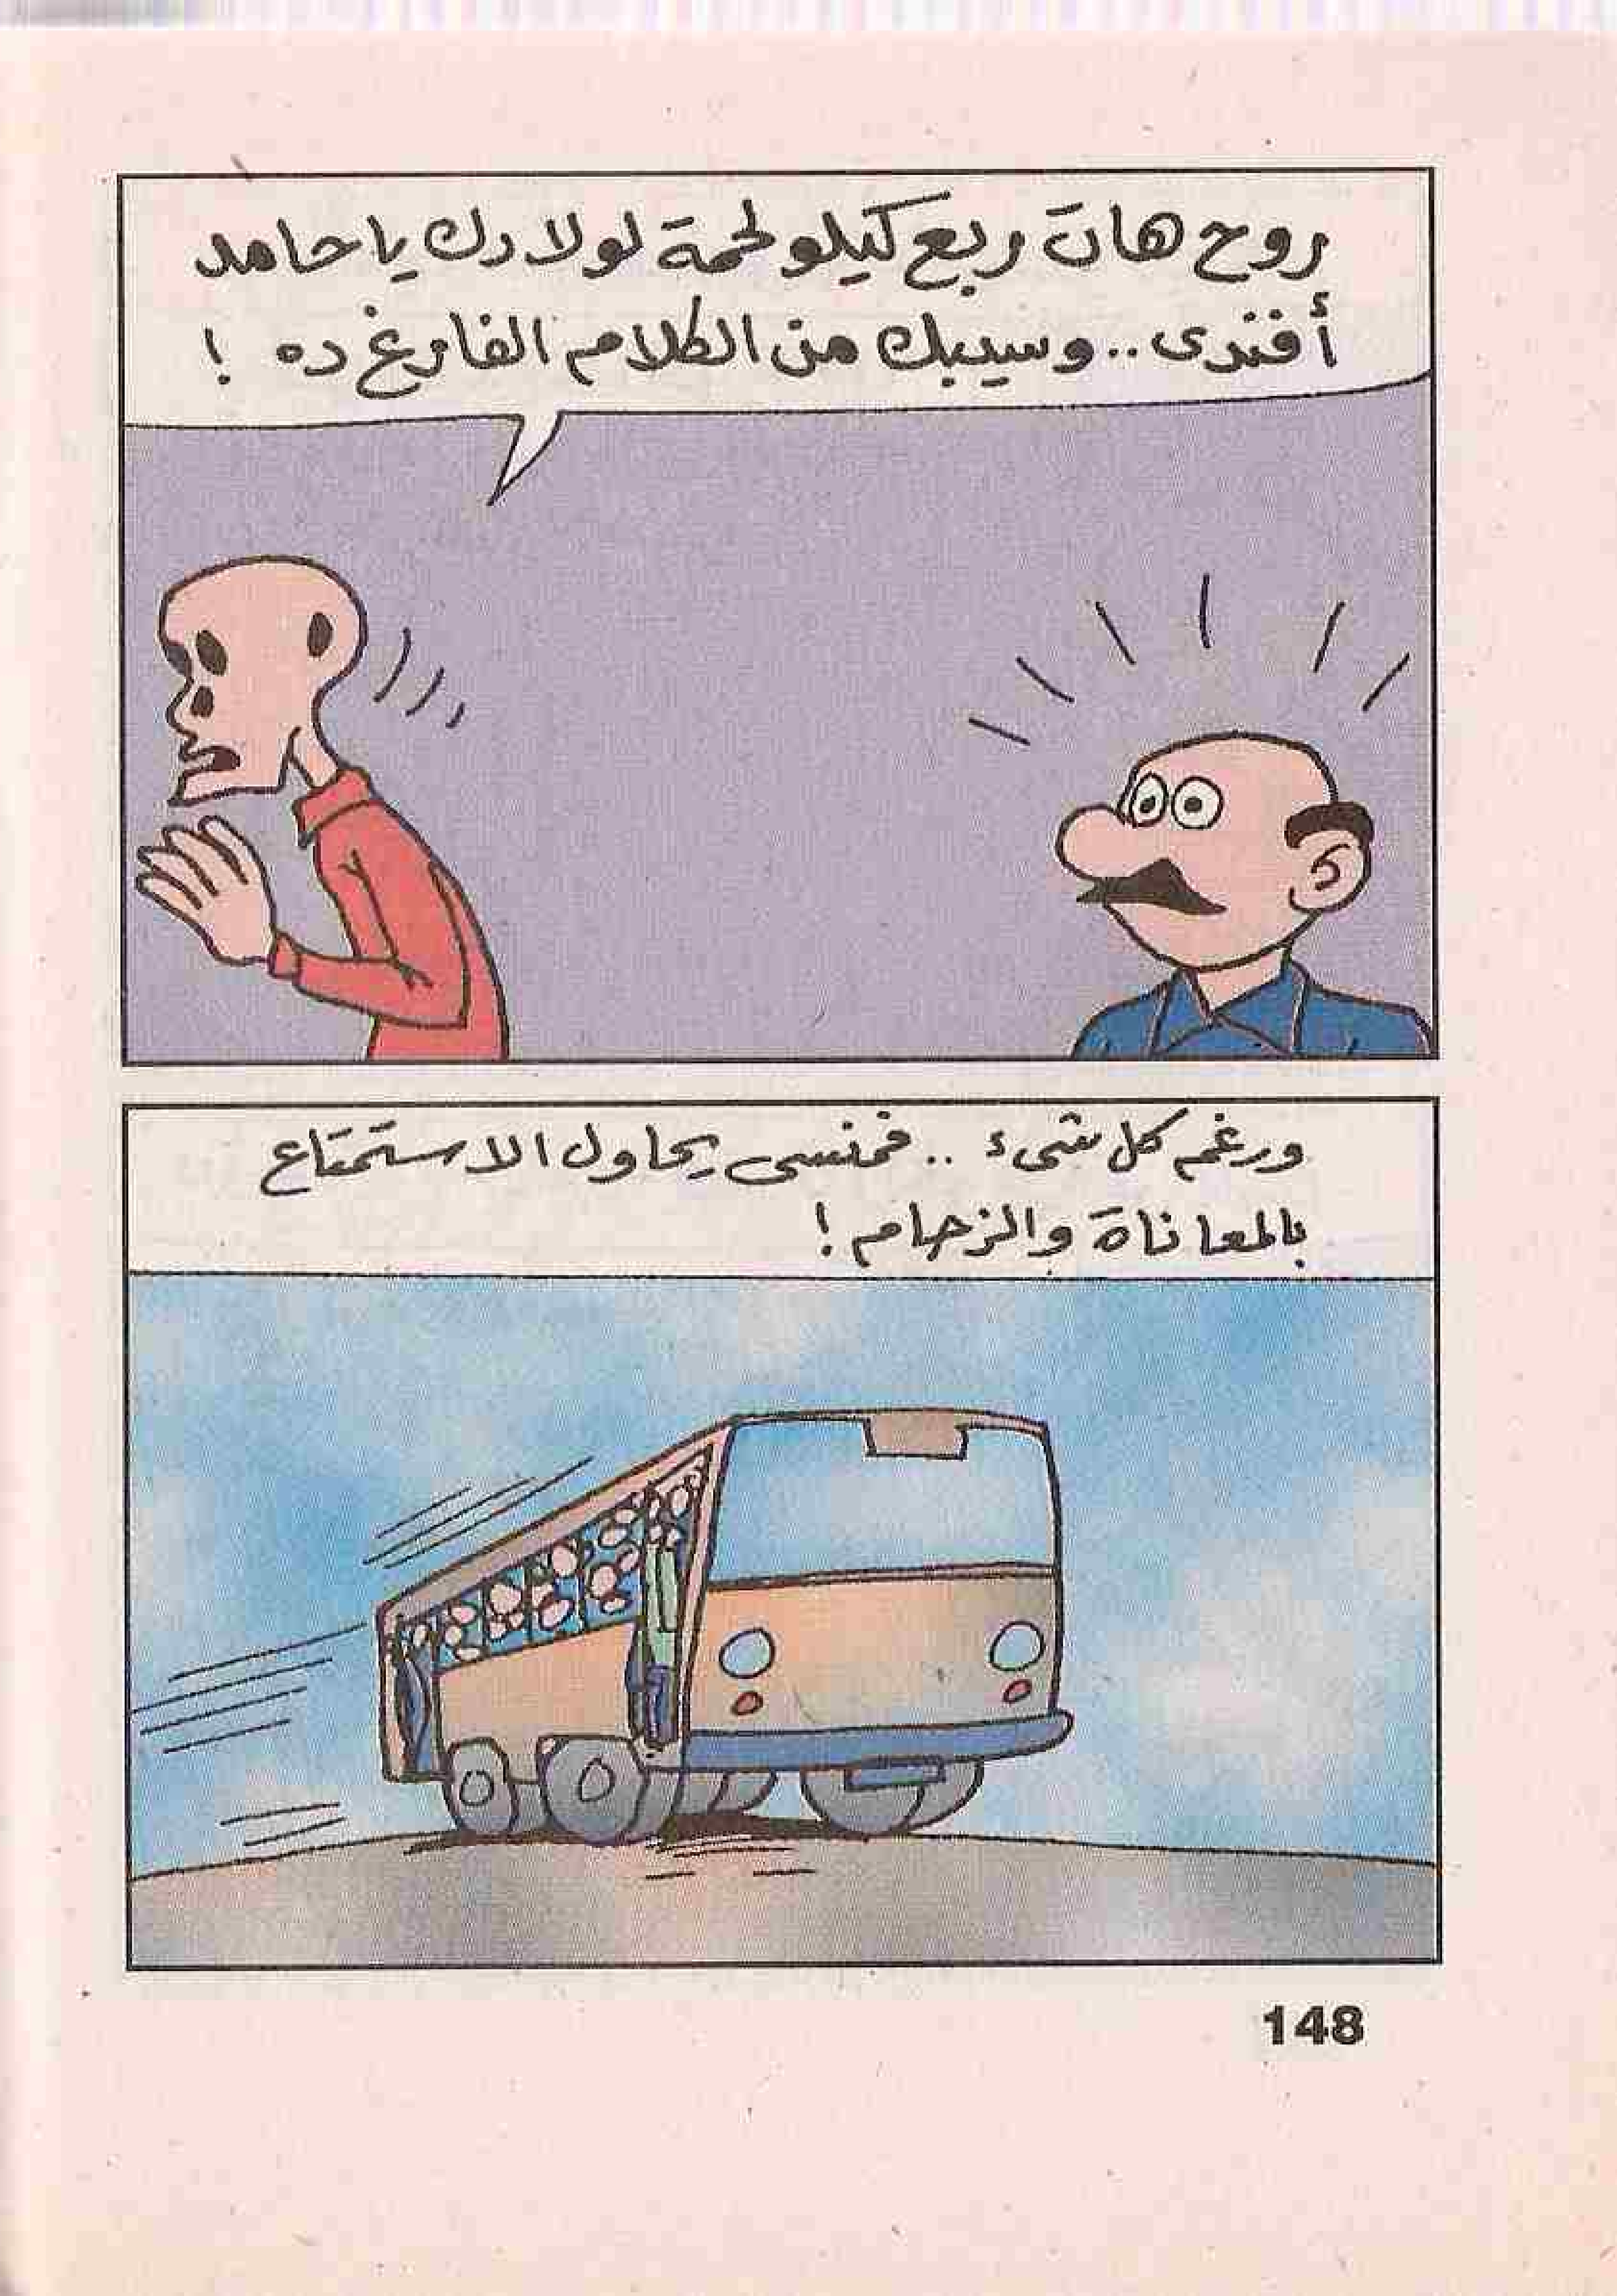 روح هات ربع كيلو لحمة لولادك يا حامد
أفندى .. وسيبك من الكلام الفارغ ده !
ورغم كل شىء .. فمنسى يحاول الاستمتاع
بالمعاناة والزحام !
148